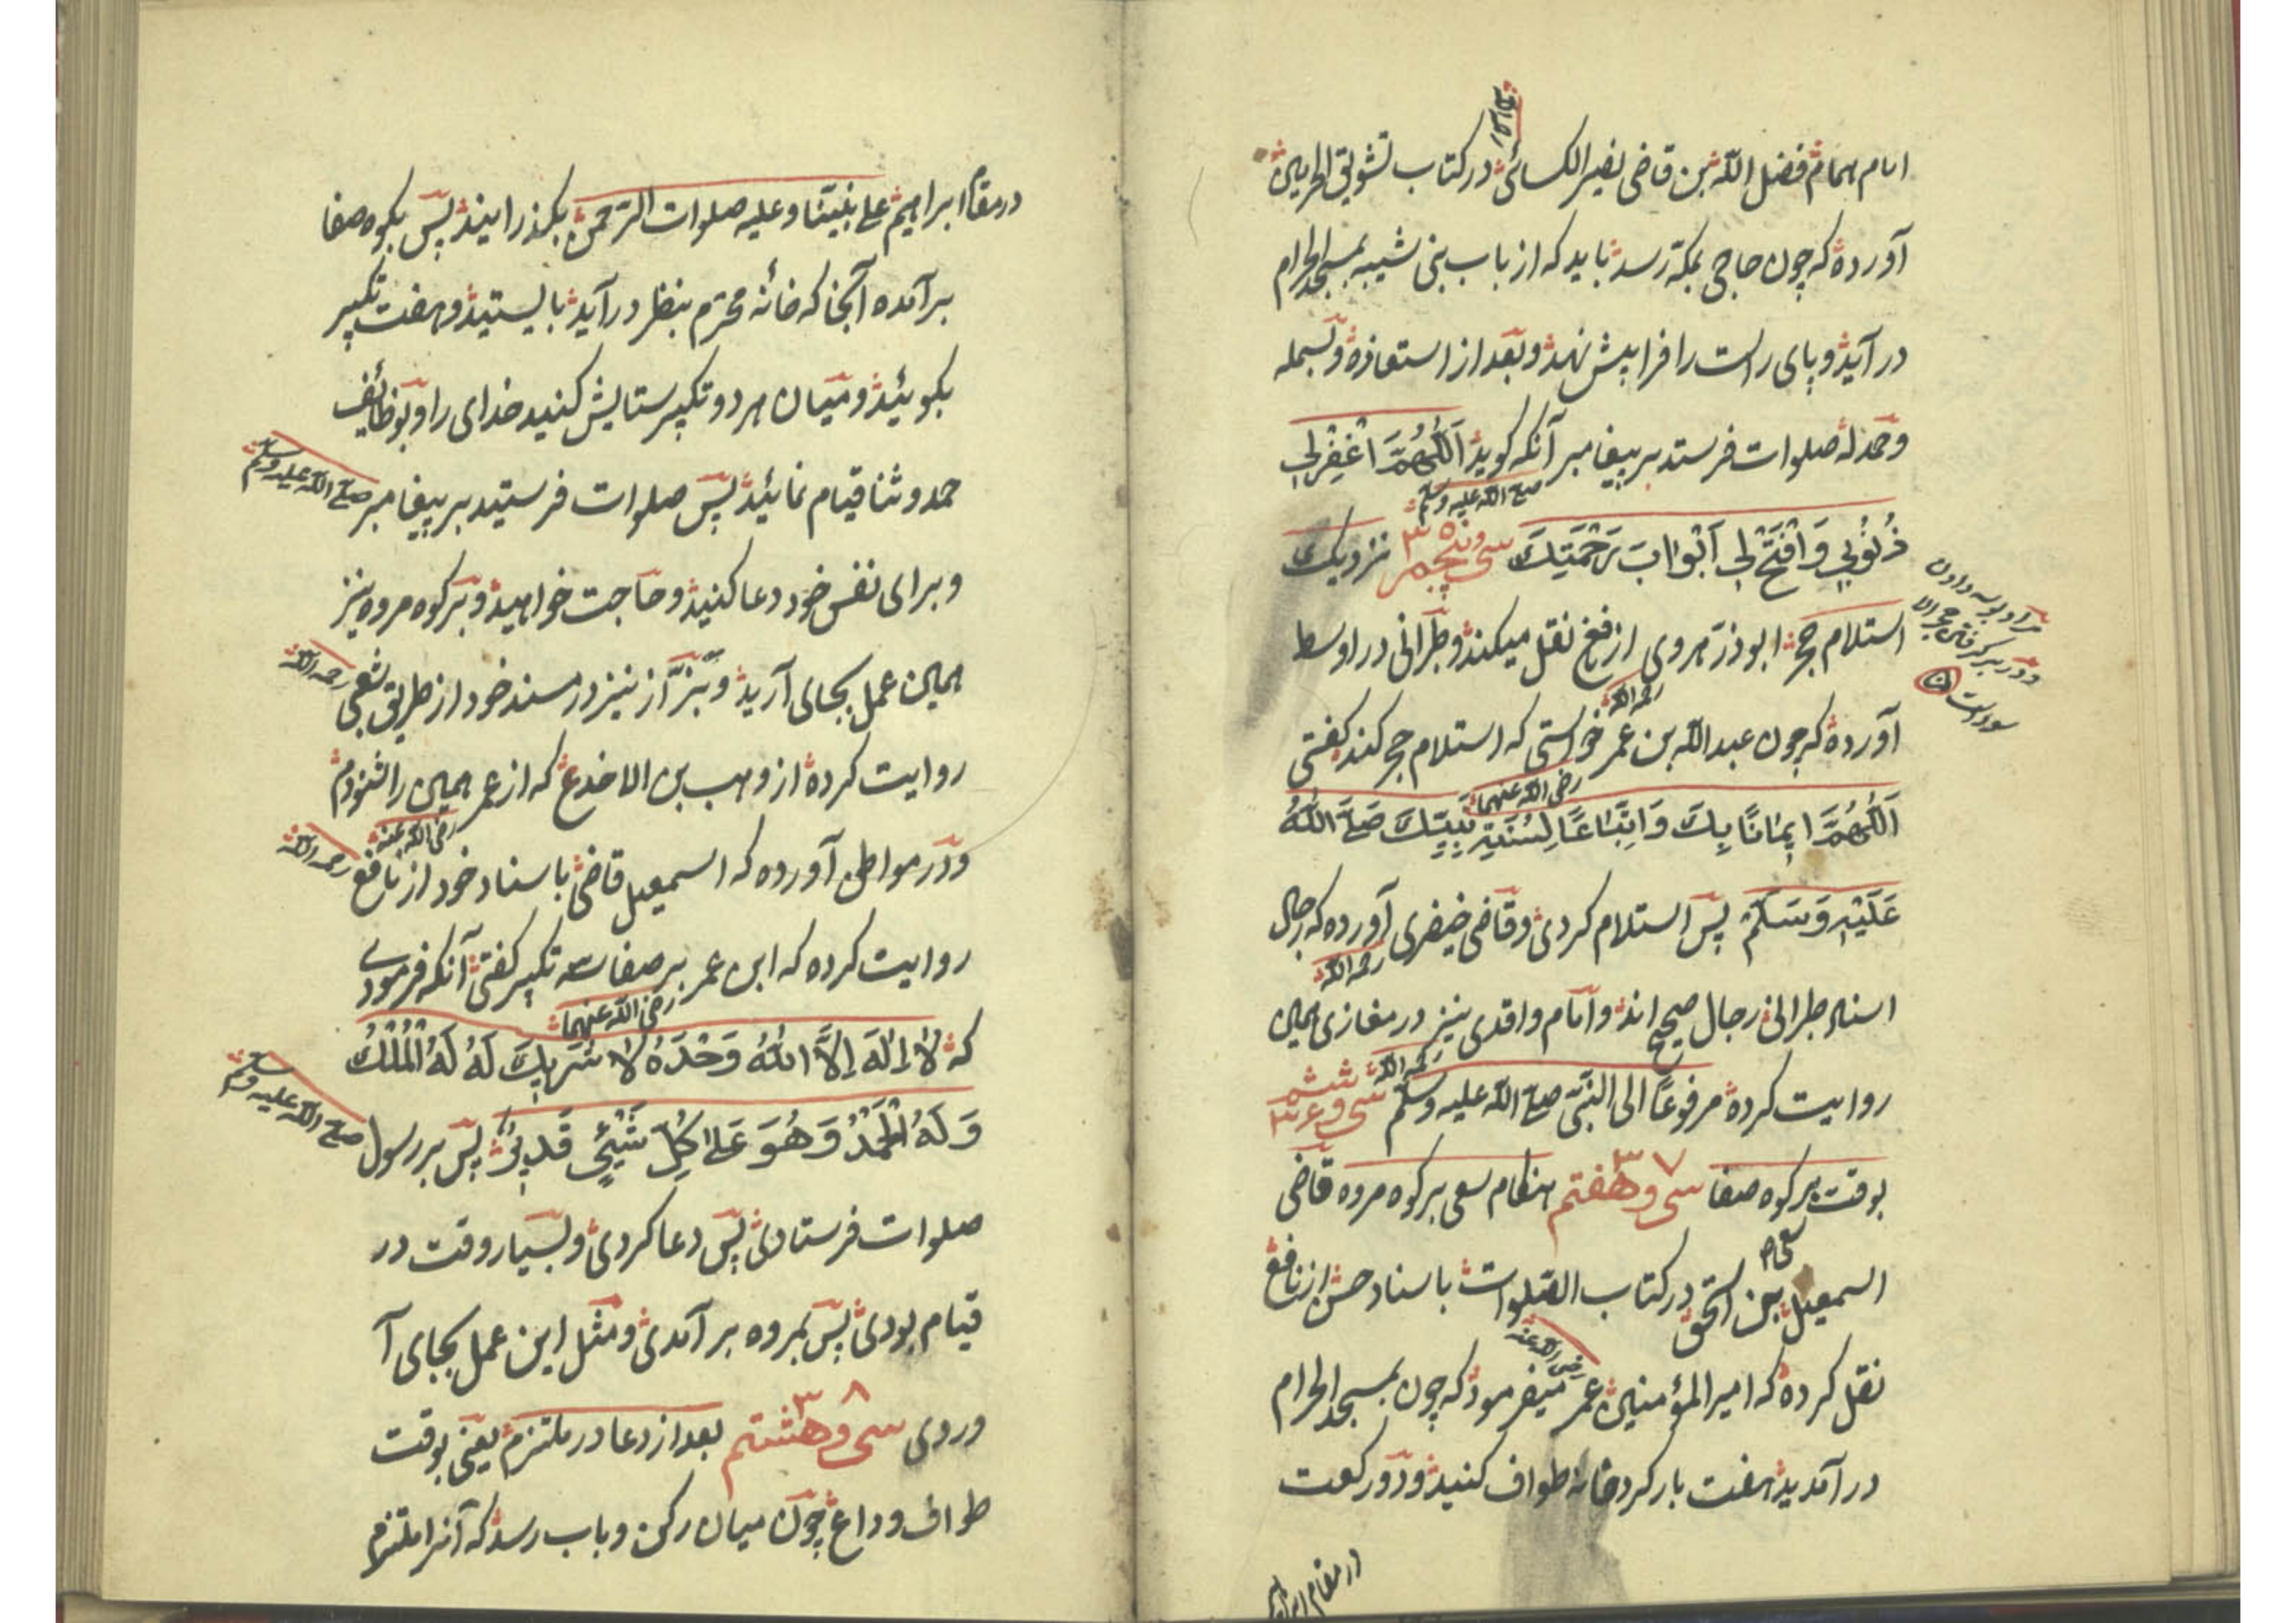 امام همام فضل الله بن قاضی نصیر الکسائی در کتاب تشویق الحرمین
رحمه الله
آورده که چون حاجی بمکه رسد باید که از باب بنی شیبه بمسجد الحرام
در آید و پای راست را فرا پیش نهد و بعد از استعاذه و بسمله
و حمدله صلوات فرستد بر پیغامبر آنکه کوید اَللّٰهُمَّ اغْفِرْلِی
صلی الله علیه وسلم
ذُنُوُبِی وَافْتَحْ لِی اَبْوٰابَ رَحْمَتِكَ سی و پنجم ۳۵ نزدیک
استلام حجر ابوذر هروی از نافع نقل میکند و طبرانی در اوسط
رحمه الله
مراد بوسه دادن
و در بر گرفتن حجر الا
سود است
آورده که چون عبد الله بن عمر خواستی که استلام حجر کند کفتی
رضی الله عنهما
اَللّٰهُمَّ اِیمٰانًا بِكَ وَ اِتِّبٰاعًا لِسُنَّةِ نَبِیِّكَ صَلَّی اللّٰهُ
عَلَیْهِ وَسَلَّمَ پس استلام کردی و قاضی خیضری آورده که رجال
رحمه الله
اسناد طبرانی رجال صحیح اند و امام واقدی نیز در مغازی همین
رحمه الله
روایت کرده مرفوعًا الی النبی صلی الله علیه وسلم سی و ششم ۳۶
بوقت بر کوه صفا سی و هفتم ۳۷ هنکام سعی بر کوه مروه قاضی
سعی
اسمعیل بن اسحق در کتاب الصلوات باسناد حسن از نافع
نقل کرده که امیر المؤمنین عمر میفرمود که چون بمسجد الحرام
رضی الله عنه
در آمدید هفت بار کرد خانه طواف کنید و دو رکعت
در مقام ابراهیم
در مقام ابراهیم علی نبینا و علیه صلوات الرحمن بکذرانید پس بکوه صفا
بر آمده آنجا که خانه محترم بنظر در آید بایستید و هفت تکبیر
بکویید و میان هر دو تکبیر ستایش کنید خدای را و بوظائف
حمد و ثنا قیام نمائید پس صلوات فرستید بر پیغامبر صلی الله علیه وسلم
و برای نفس خود دعا کنید و حاجت خواهید و بر کوه مروه نیز
همین عمل بجای آرید و بزّاز نیز در مسند خود از طریق شعبی رحمه الله
روایت کرده از وهب بن الاخدع که از عمر همین را شنودم
رضی الله عنه
و در مواطن آورده که اسمعیل قاضی باسناد خود از نافع رحمه الله
روایت کرده که ابن عمر بر صفا سه تکبیر کفتی آنکه فرمودی
رضی الله عنهما
که لاٰ اِلٰهَ اِلاَّ اللّٰهُ وَحْدَهُ لاٰ شَرِیكَ لَهُ لَهُ الْمُلْكُ
وَ لَهُ الْحَمْدُ وَ هُوَ عَلیٰ کُلِّ شَیْئٍ قَدِیرٌ پس بر رسول صلی الله علیه وسلم
صلوات فرستادی پس دعا کردی و بسیار وقت در
قیام بودی پس بمروه بر آمدی و مثل این عمل بجای آ
وردی سی و هشتم ۳۸ بعد از دعا در ملتزم یعنی بوقت
طواف وداع چون میان رکن و باب رسد که آنرا ملتزم